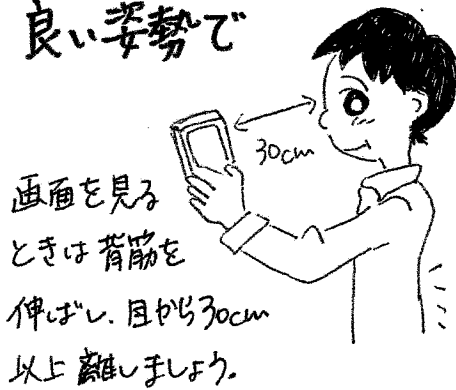 良い姿勢で
30cm
画面を見る
ときは背筋を
伸ばし、目から30cm
以上離しましょう。